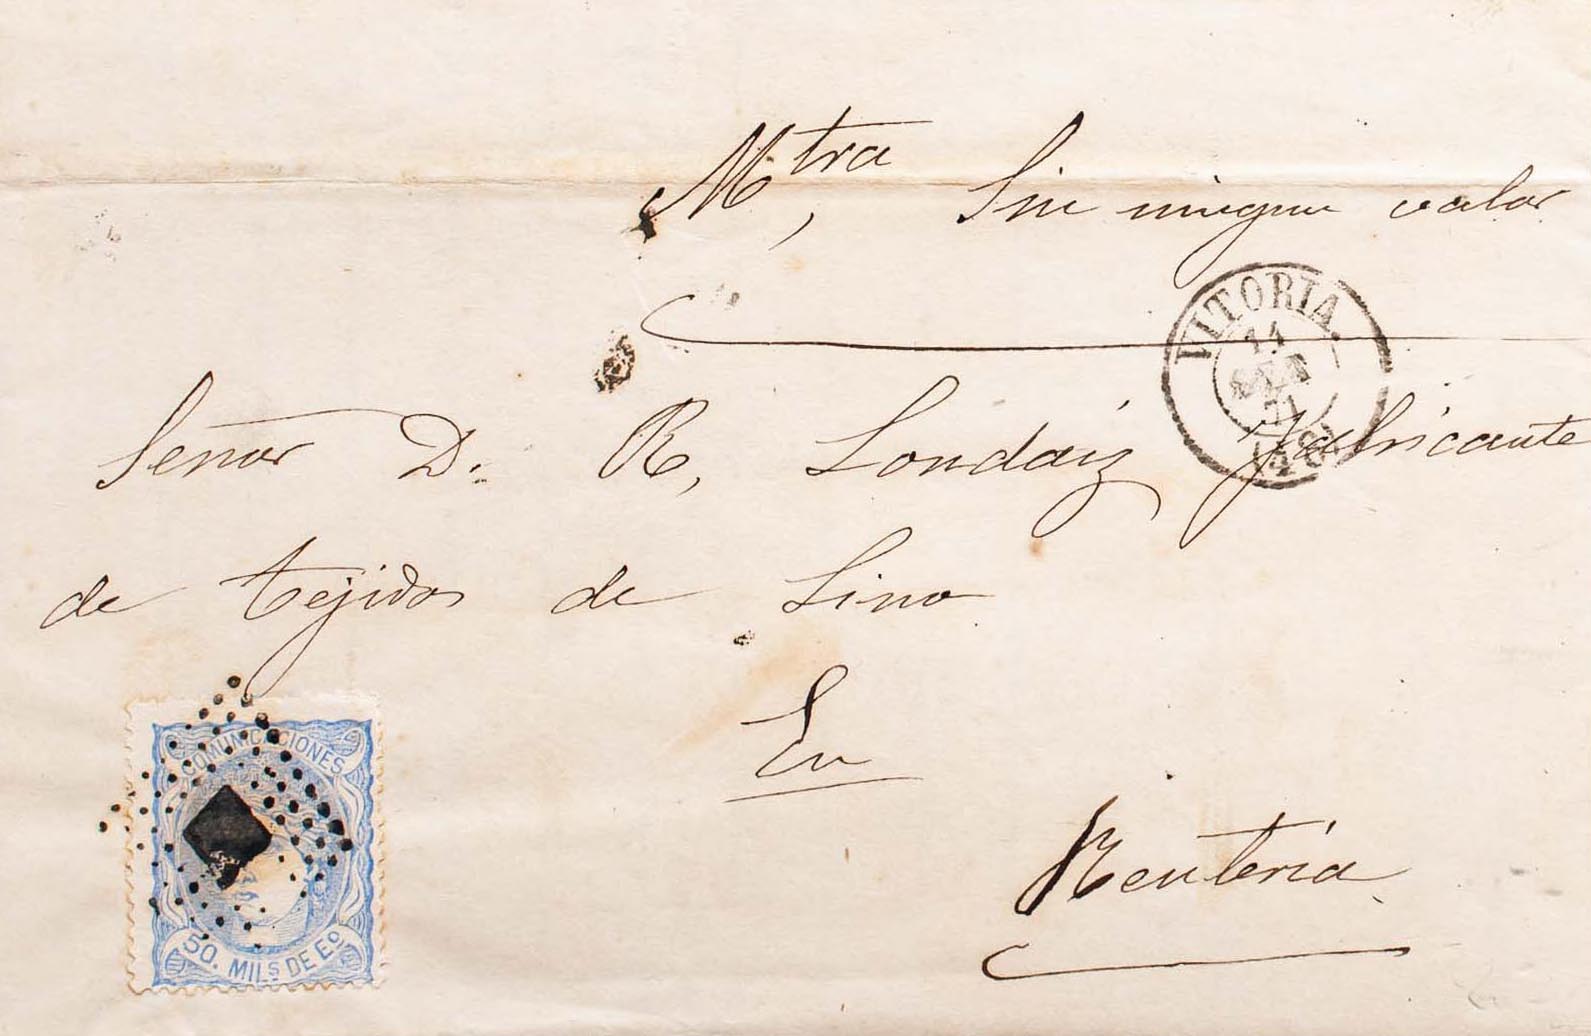 Mtra, Sin ningun valor
VITORIA.
14
71
Señor D. R, Londaiz fabricante
de tejidos de Lino
En
Renteria
COMUNICACIONES
50. MILS DE Eº